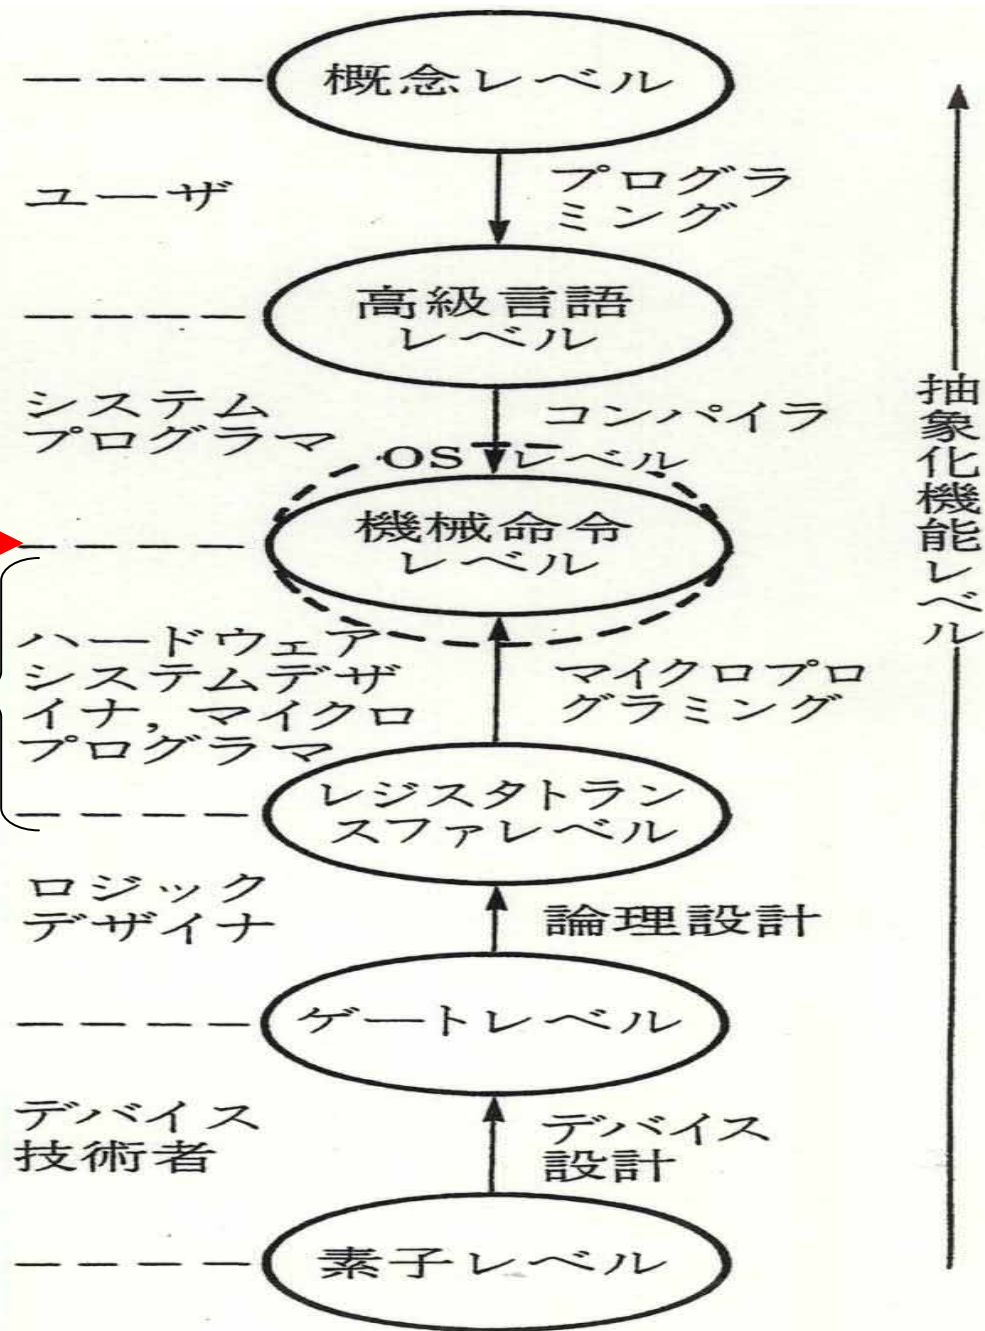 概念レベル
ユーザ
プログラ
ミング
高級言語
レベル
システム
プログラマ
コンパイラ
OS レベル
機械命令
レベル
ハードウェア
システムデザ
イナ, マイクロ
プログラマ
マイクロプロ
グラミング
レジスタトラン
スファレベル
ロジック
デザイナ
論理設計
ゲートレベル
デバイス
技術者
デバイス
設計
素子レベル
抽象化機能レベル